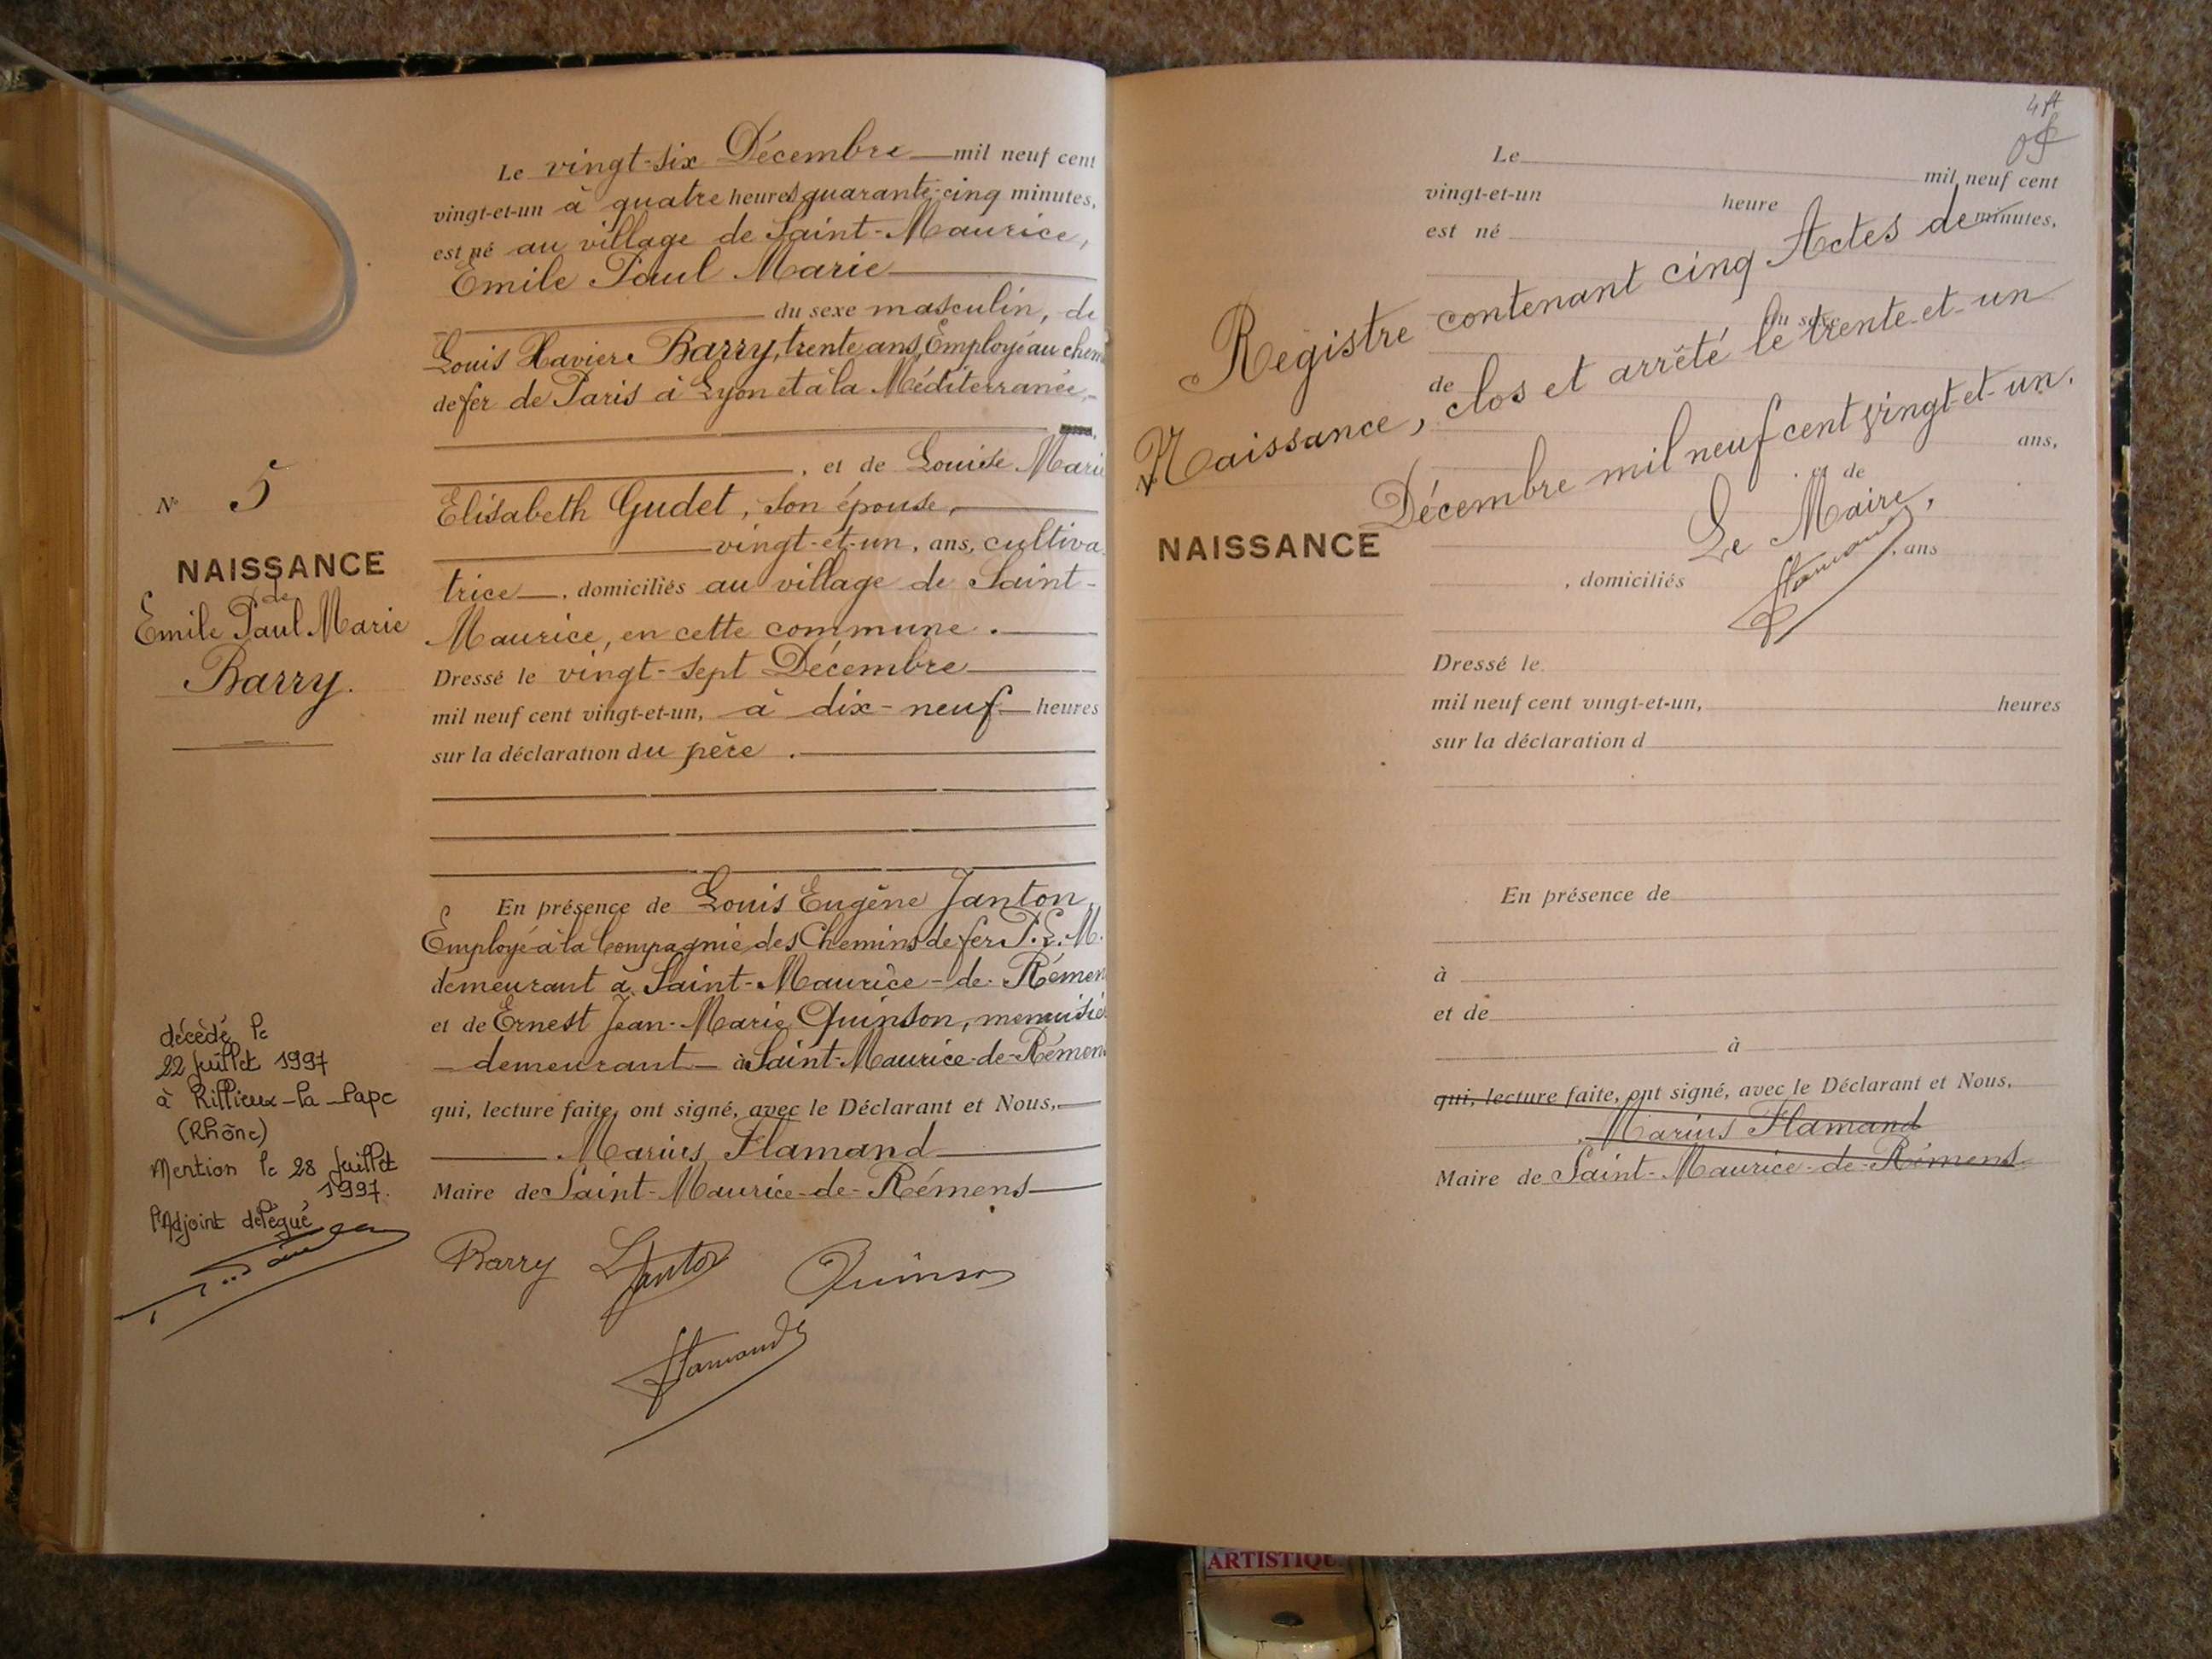 Le vingt-six Décembre mil neuf cent
vingt-et-un à quatre heures quarante-cinq minutes,
est né au village de Saint-Maurice,
Emile Paul Marie
du sexe masculin, de
Louis Xavier Barry, trente ans, Employé au chem
de fer de Paris à Lyon et à la Méditerranée,
, et de Louise Marie
Elisabeth Gudet, son épouse,
vingt-et-un, ans, cultiva
trice, domiciliés au village de Saint-
Maurice, en cette commune.
Dressé le vingt-sept Décembre
mil neuf cent vingt-et-un, à dix-neuf heures
sur la déclaration du père.
En présence de Louis Eugène Janton,
Employé à la Compagnie des Chemins de fer P.L.M.
demeurant à Saint-Maurice-de-Rémen
et de Ernest Jean-Marie Quinson, menuisie
demeurant à Saint-Maurice-de-Rémen
qui, lecture faite, ont signé, avec le Déclarant et Nous,
Marius Flamand
Maire de Saint-Maurice-de-Rémens
Barry LJanton Quinson
Flamand
N° 5
NAISSANCE
de
Emile Paul Marie
Barry.
décédé le
22 Juillet 1997
à Rillieux-la-Pape
(Rhône)
Mention le 28 Juillet
1997.
l'Adjoint délégué
Le mil neuf cent
vingt-et-un heure minutes,
est né
du sexe
de
ans,
et de
, ans
, domiciliés
Registre contenant cinq Actes de
Naissance, clos et arrêté le trente-et-un
Décembre mil neuf cent vingt-et-un.
Le Maire,
Flamand
N°
NAISSANCE
Dressé le
mil neuf cent vingt-et-un, heures
sur la déclaration d
En présence de
à
et de
à
qui, lecture faite, ont signé, avec le Déclarant et Nous,
Marius Flamand
Maire de Saint-Maurice-de-Rémens
ARTISTIQU